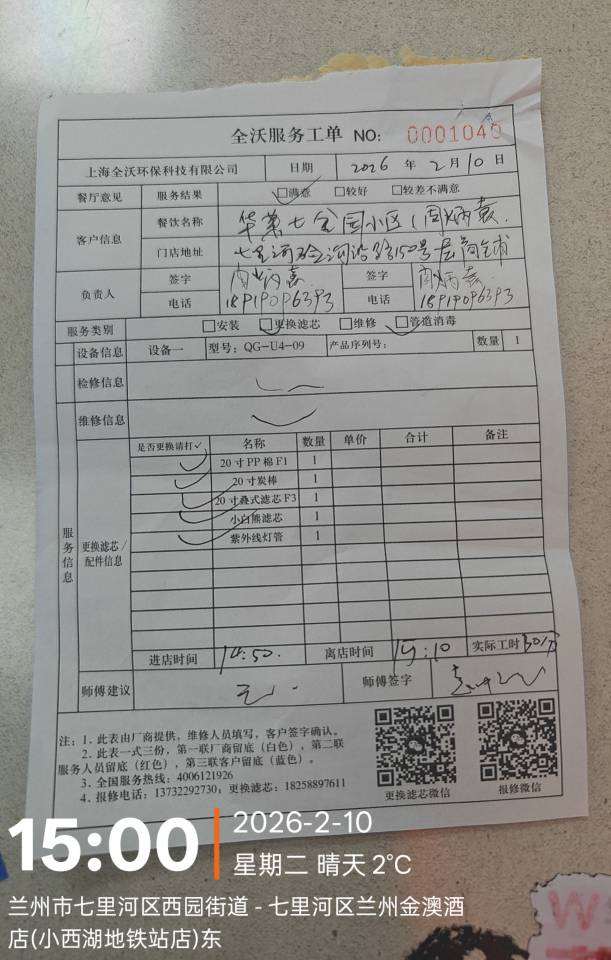 全沃服务工单 NO: 0001040
上海全沃环保科技有限公司 日期 2026 年 2 月 10 日
餐厅意见 服务结果 □满意 □较好 □较差不满意
客户信息 餐饮名称 华莱士 园小区(周炳嘉)
门店地址 七里河 150号
负责人 签字 周炳嘉 签字 周炳嘉
电话 18919096393 电话 18919096393
服务类别 □安装 □更换滤芯 □维修 □管道消毒
设备信息 设备一 型号: QG-U4-09 产品序列号: 数量 1
检修信息
维修信息
服务信息
更换滤芯/配件信息
是否更换请打✓ 名称 数量 单价 合计 备注
✓ 20寸PP棉F1 1
✓ 20寸炭棒 1
✓ 20寸叠式滤芯F3 1
✓ 小白熊滤芯 1
✓ 紫外线灯管 1
进店时间 14:50 离店时间 15:10 实际工时
师傅建议 无 师傅签字
注: 1. 此表由厂商提供, 维修人员填写, 客户签字确认。
2. 此表一式三份, 第一联厂商留底(白色), 第二联
服务人员留底(红色), 第三联客户留底(蓝色)。
3. 全国服务热线: 4006121926
4. 报修电话: 13732292730; 更换滤芯: 18258897611
更换滤芯微信 报修微信
15:00
2026-2-10
星期二 晴天 2℃
兰州市七里河区西园街道 - 七里河区兰州金澳酒
店(小西湖地铁站店)东
W